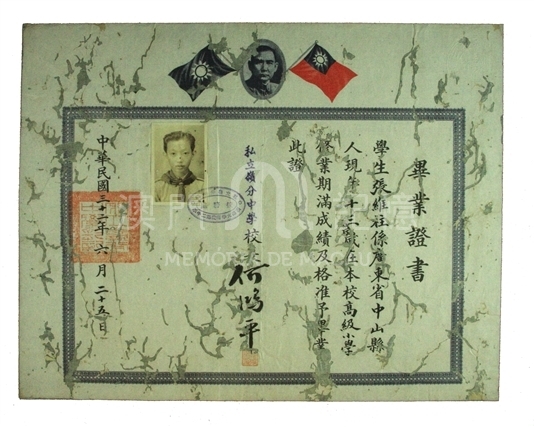 畢業證書
學生張維社係廣東省中山縣
人現年十三歲在本校高級小學
修業期滿成績及格准予畢業
此證
私立嶺分中學校長
何鴻平
中華民國三十二年六月二十五日
澳門
MEMÓRIA DE MACAU